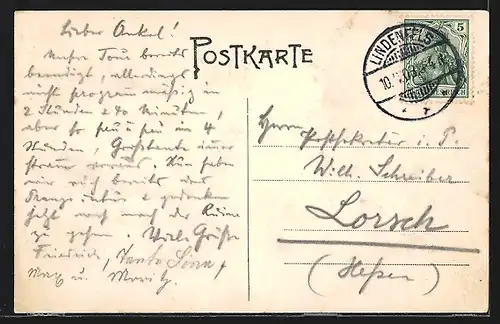 Lieber Onkel!
Unsere Tour bereits
beendigt, allerdings
nicht programmäßig in
2 Stunden & 40 Minuten,
aber so peu à peu in 4
Stunden, Großtante immer
voraus. Nun haben
wir uns bereits
& gedenken
jetzt noch nach der Ruine
zu gehen. Viele Grüße
Friedrich, Tante
Max u. Moritz.
POSTKARTE
LINDENFELS
10.
5
Herrn Postsekretär i. P.
Wilh. Schreiber
Lorsch
(Hessen)